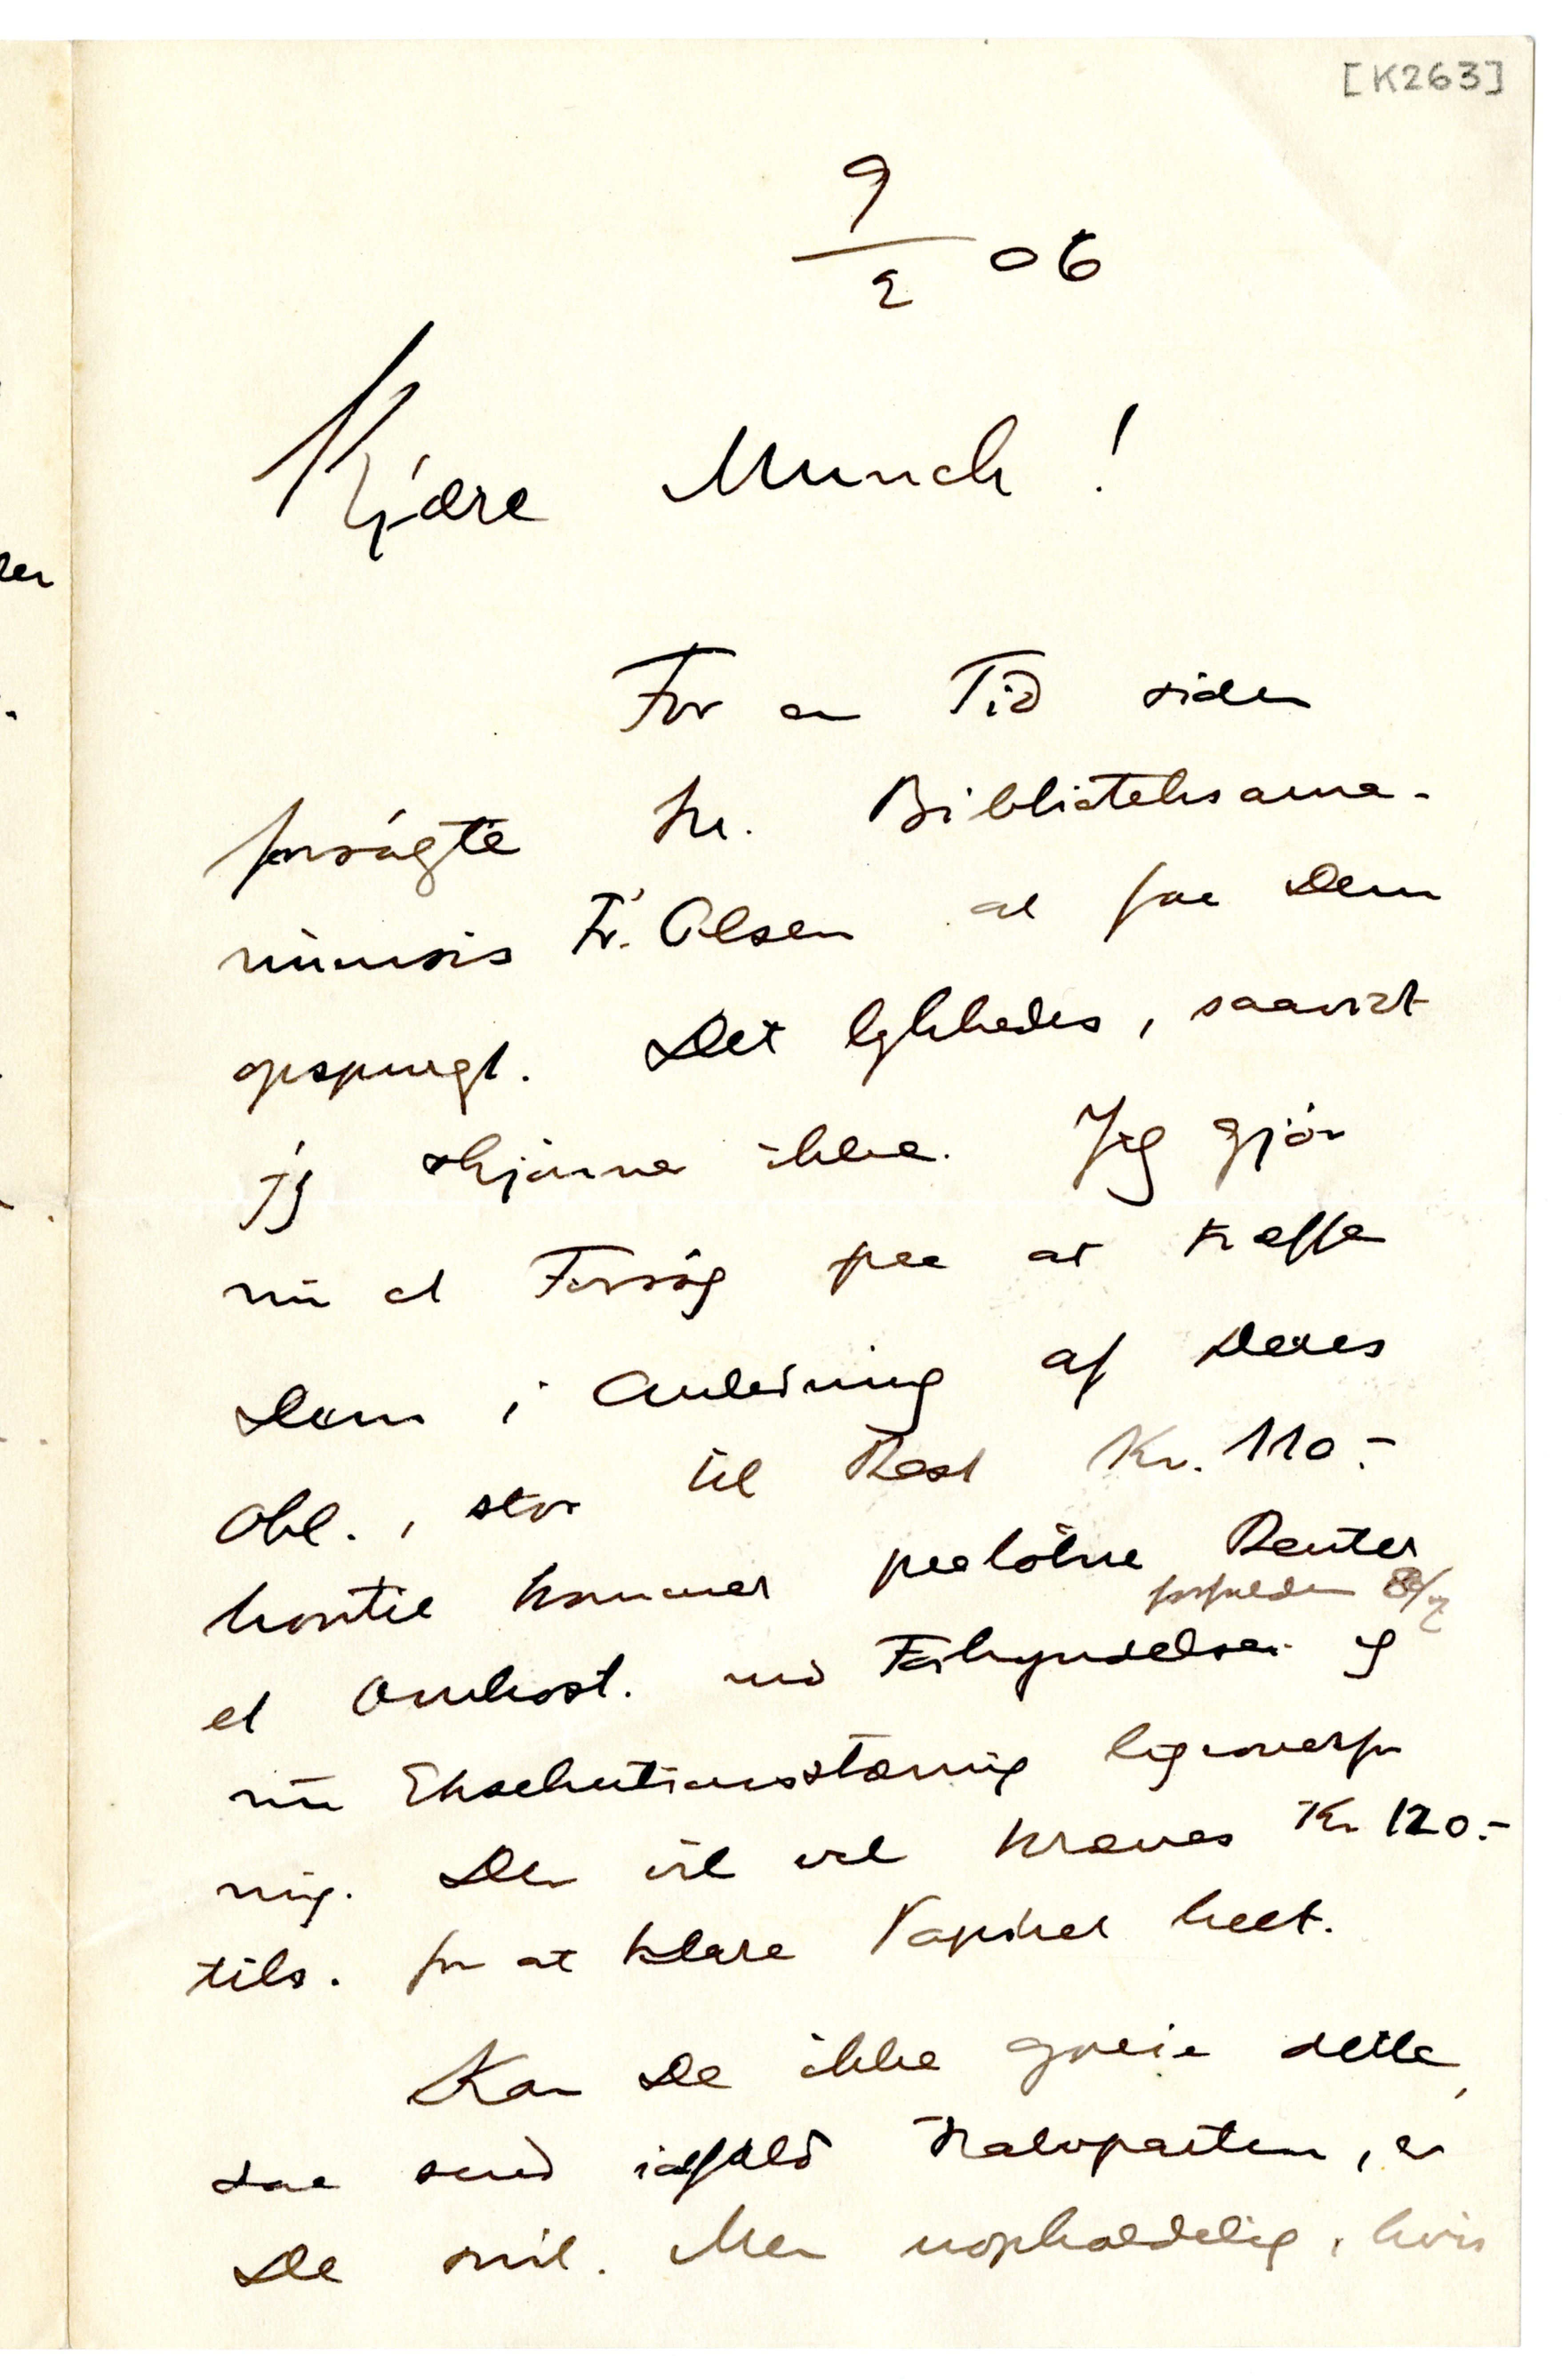 [K263]
9/2 06
Kjære Munch!
For en Tid siden
forsøgte hr. Biblioteksama-
nuensis Fr. Olsen at faa Dem
opspurgt. Det lykkedes, saavidt
jeg skjønner ikke. Jeg gjør
nu et Forsøg paa at træffe
Dem i Anledning af Deres
Obl., stor til Rest Kr. 110.-
hvortil kommer paaløbne Renter
forfalden 8/
et Omkost. ved Forkyndelser og
nu Eksekutionsstævning ligeoverfor
mig. Der vil vel kræves Kr 120.-
tils. for at klare Papiret helt.
Kan De ikke greie dette,
saa send iafald Halvparten, er
De snil. Men uopholdelig, hvis